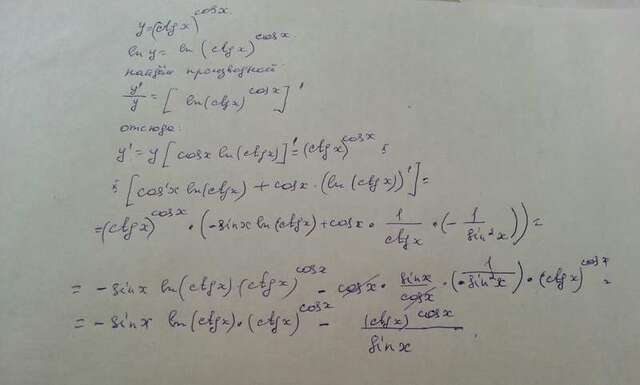 y=(ctgx)^cosx
ln y = ln (ctgx)^cosx
найдём производной
y'/y = [ ln(ctgx)^cosx ]'
отсюда:
y' = y [ cosx ln(ctgx) ]' = (ctgx)^cosx ·
· [ cos'x ln(ctgx) + cosx · (ln(ctgx))' ] =
= (ctgx)^cosx · (-sinx ln(ctgx) + cosx · 1/ctgx · (- 1/sin²x )) =
= - sinx ln(ctgx) (ctgx)^cosx - cosx · sinx/cosx · ( 1/- sin²x ) · (ctgx)^cosx =
= - sinx ln(ctgx) · (ctgx)^cosx - (ctgx)^cosx/sinx .